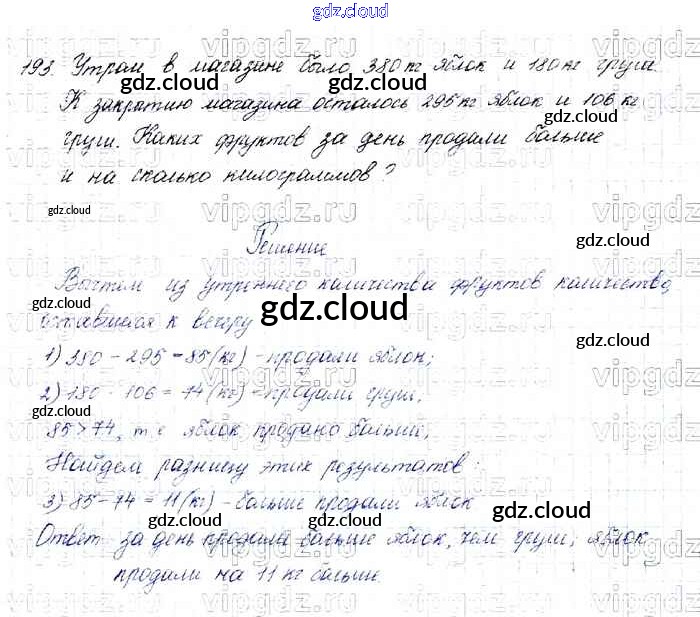 gdz.cloud
193. Утром в магазине было 380 кг яблок и 180 кг груш.
К закрытию магазина осталось 295 кг яблок и 106 кг
груш. Каких фруктов за день продали больше
и на сколько килограммов?
Решение
Вычтем из утреннего количества фруктов количество,
оставшееся к вечеру
1) 380 - 295 = 85 (кг) - продали яблок;
2) 180 - 106 = 74 (кг) - продали груш;
85 > 74, т.е. яблок продано больше;
Найдем разницу этих результатов:
3) 85 - 74 = 11 (кг) - больше продали яблок
Ответ за день продали больше яблок, чем груш; яблок
продали на 11 кг больше.